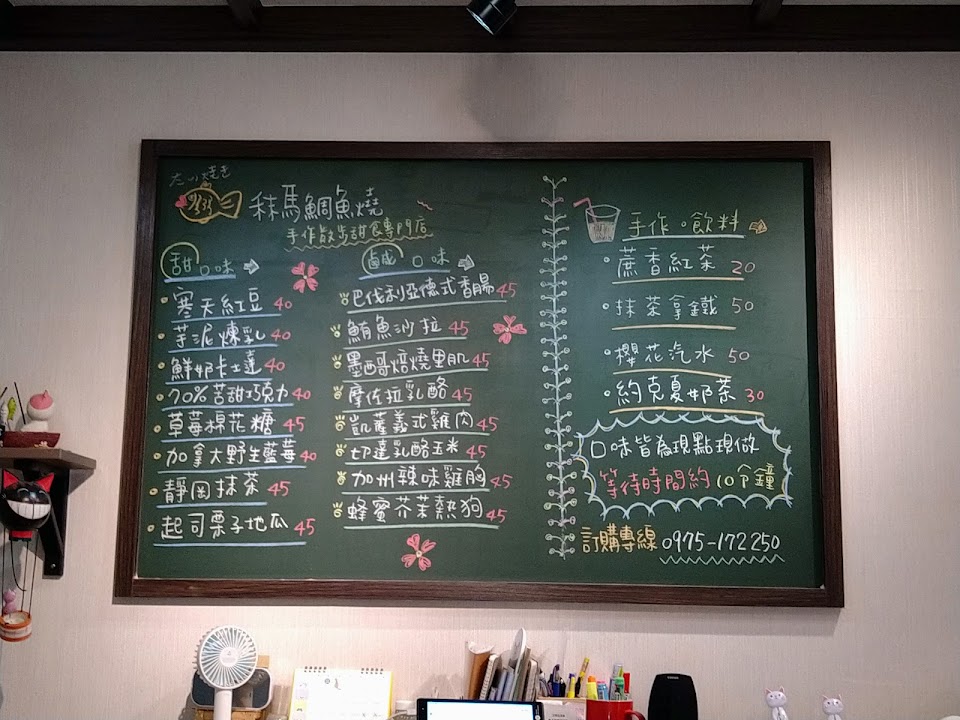 たい焼き
秣馬鯛魚燒
手作散步甜食專門店
甜口味
寒天紅豆 40
芋泥煉乳 40
鮮奶卡士達 40
70%苦甜巧克力 40
草莓棉花糖 45
加拿大野生藍莓 40
靜岡抹茶 45
起司栗子地瓜 45
鹹口味
巴伐利亞德式香腸 45
鮪魚沙拉 45
墨西哥焙燒里肌 45
摩佐拉乳酪 45
凱薩義式雞肉 45
切達乳酪玉米 45
加州辣味雞胸 45
蜂蜜芥茉熱狗 45
手作。飲料
蔗香紅茶 20
抹茶拿鐵 50
櫻花汽水 50
約克夏奶茶 30
口味皆為現點現做
等待時間約10分鐘
訂購專線 0975-172250